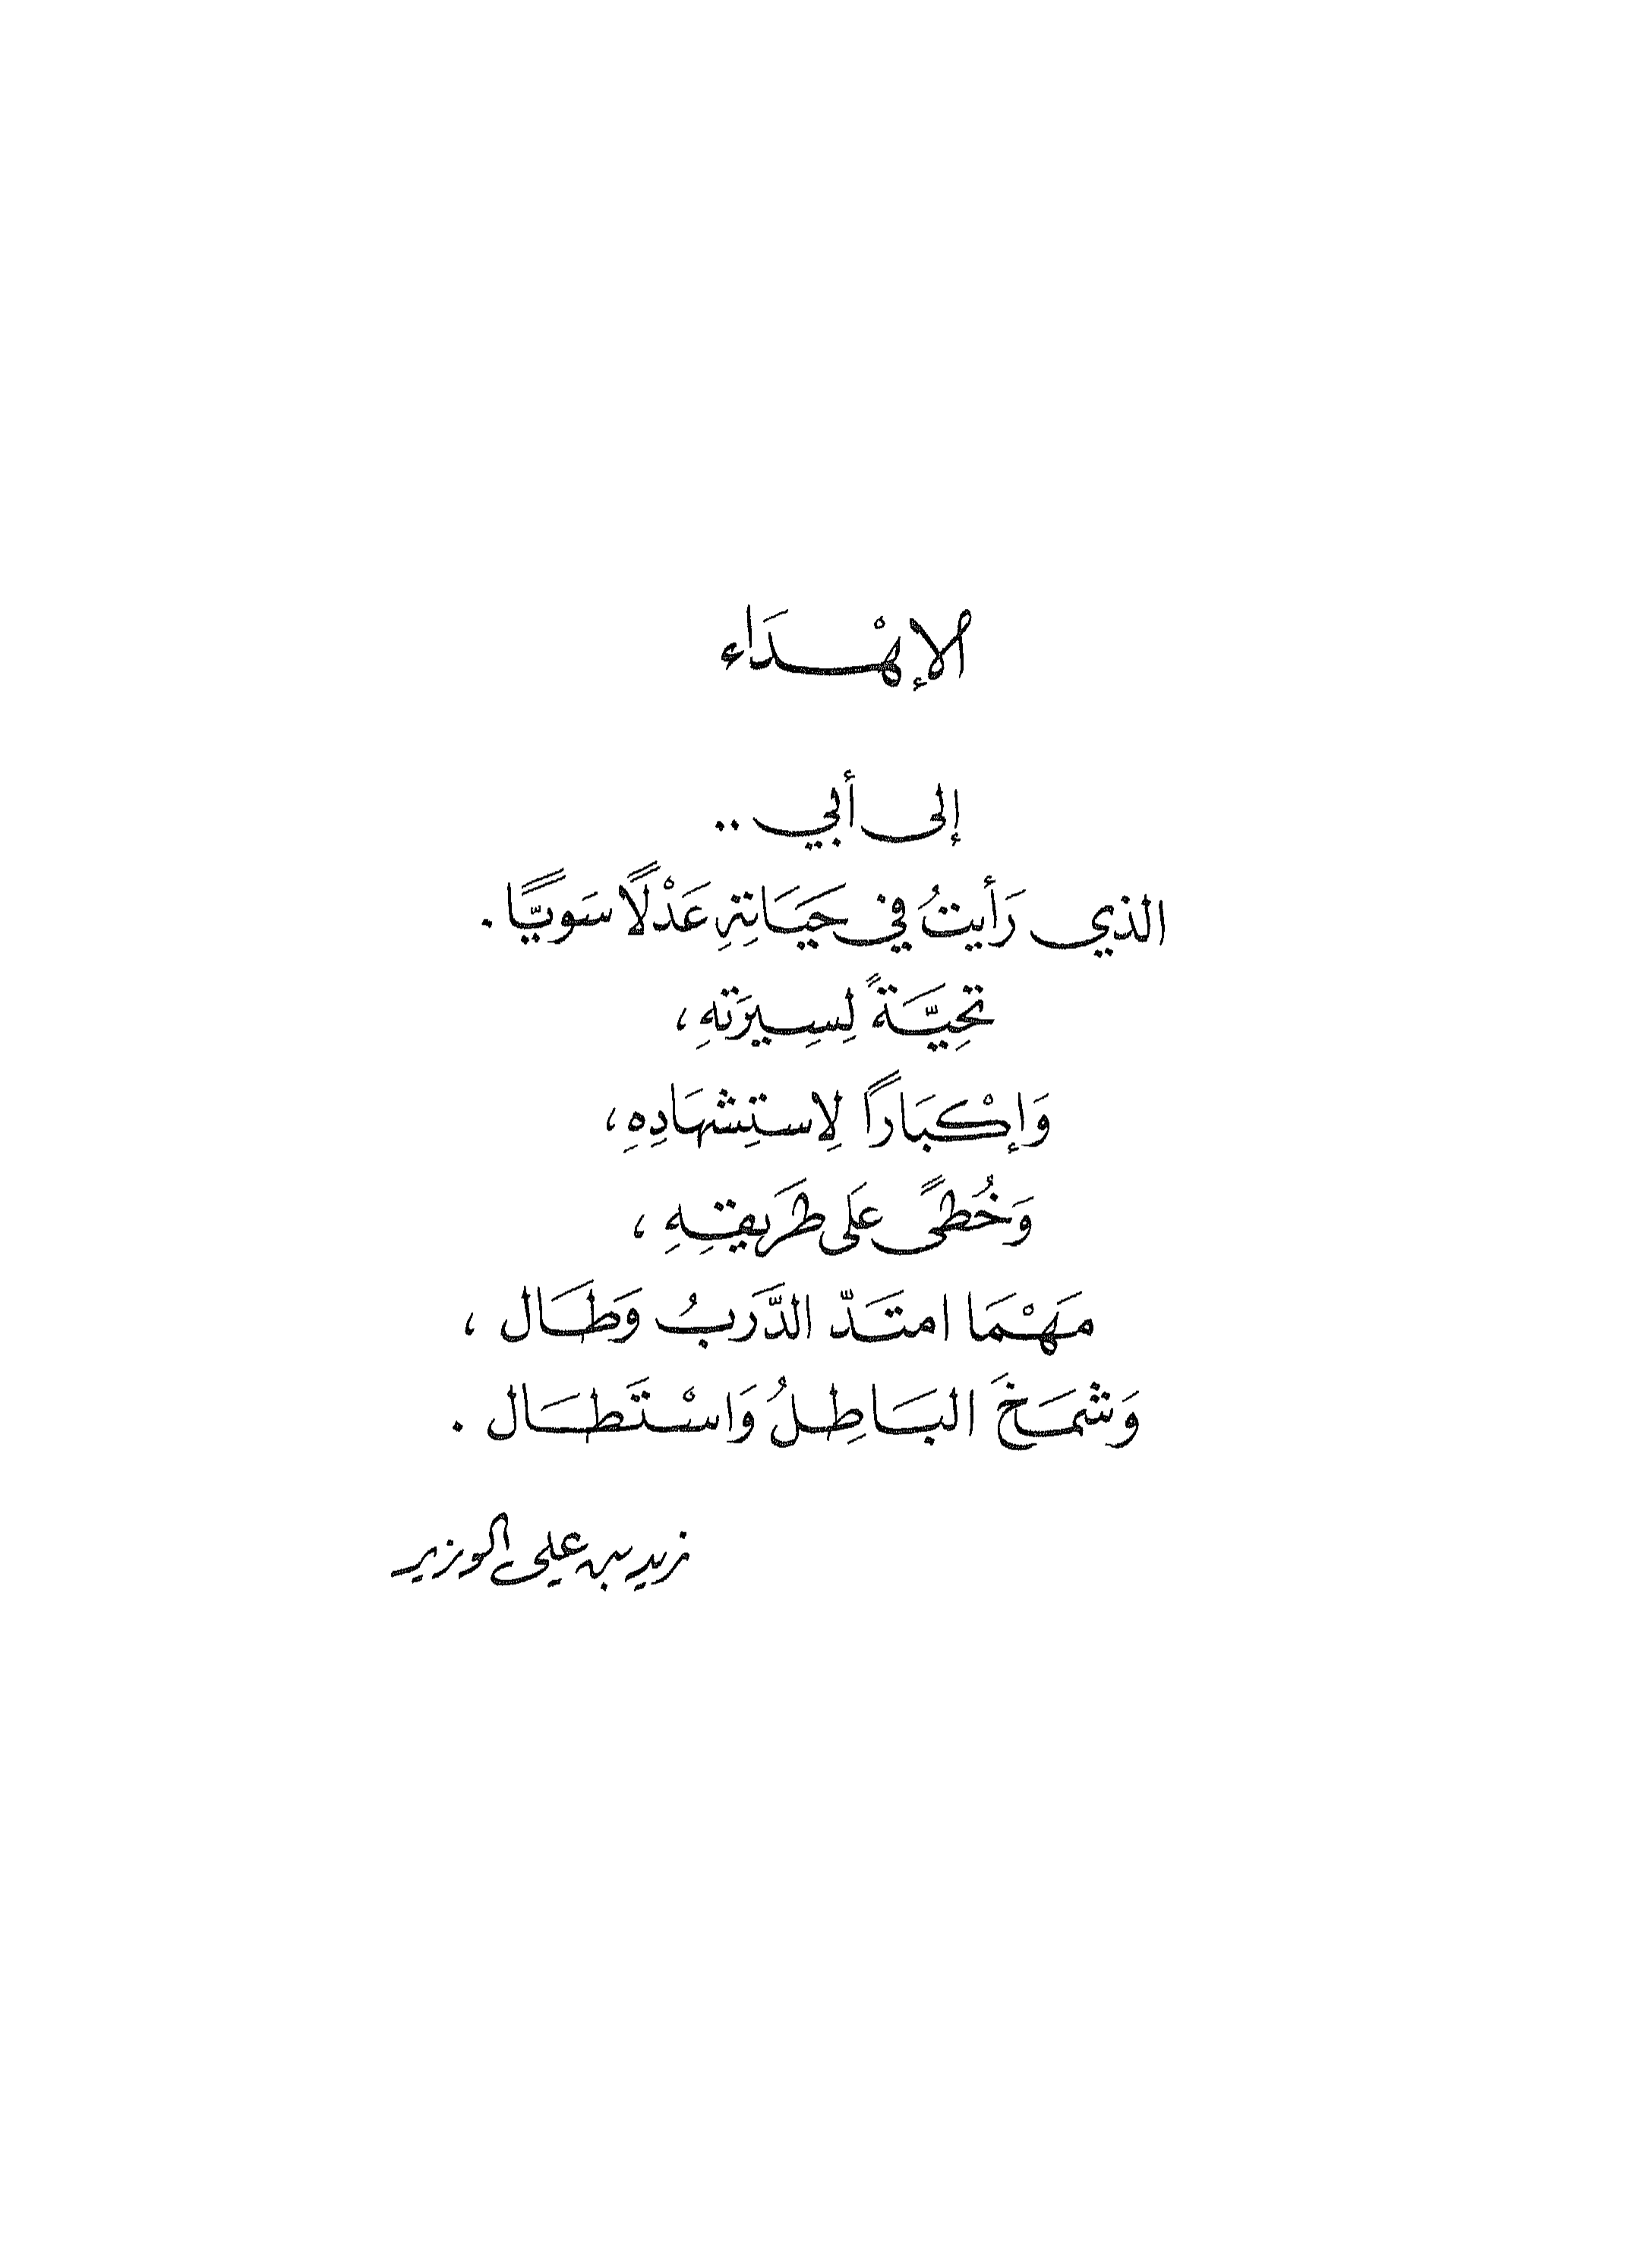 الإهْدَاء
إلى أبي ..
الذي رَأيتُ في حَيَاتِهِ عَدْلًا سَويًّا .
تحِيَّةً لِسِيرَتهِ ،
وَإكْبَاراً لِاستِشهَادِهِ ،
وَخُطىً عَلى طَريقتِهِ ،
مَهْمَا امتَدّ الدَّربُ وَطَال ،
وَشمَخَ البَاطِلُ وَاسْتَطَال .
زيد بن علي الوزير